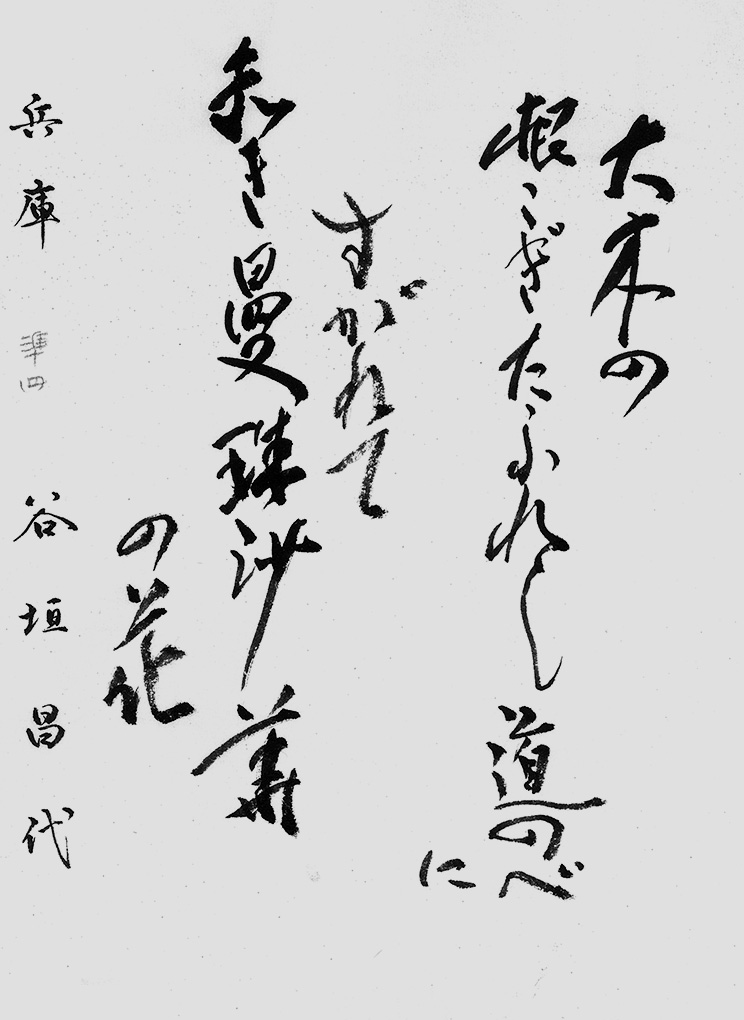 大木の
根こぎたふれし道のべ
に
すがれて
赤き曼珠沙華
の花
兵庫 準四 谷垣昌代